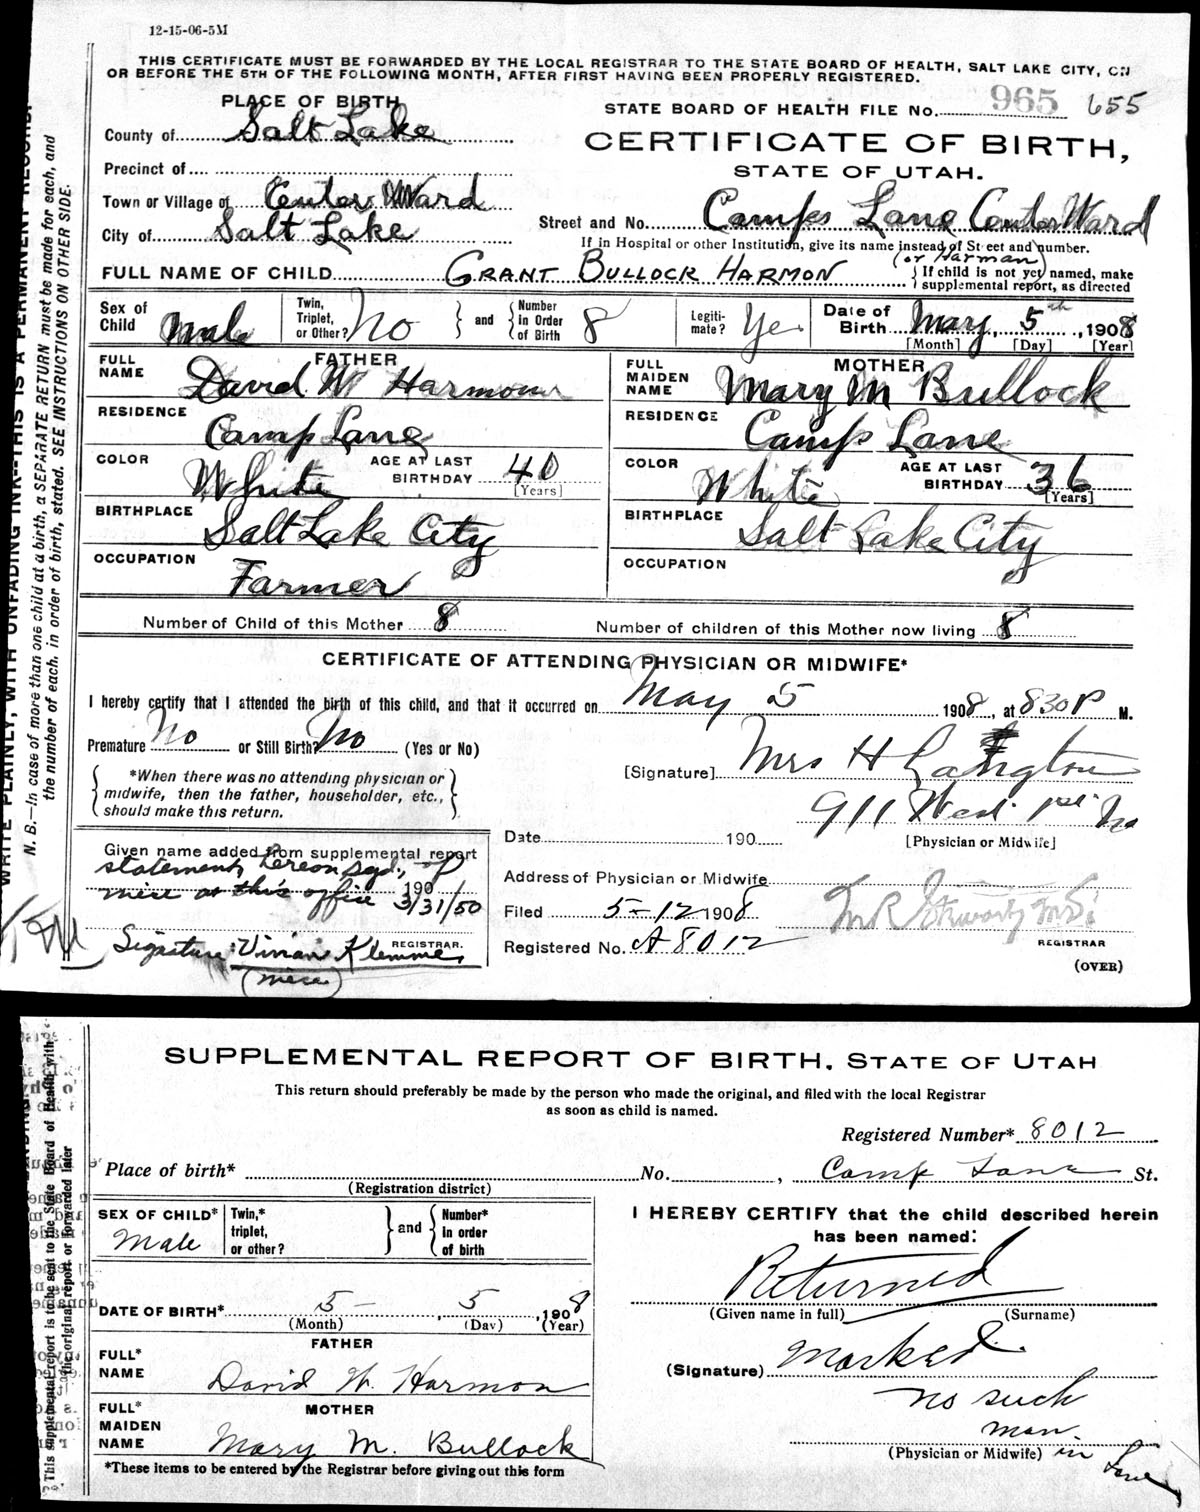 12-15-06-5M
THIS CERTIFICATE MUST BE FORWARDED BY THE LOCAL REGISTRAR TO THE STATE BOARD OF HEALTH, SALT LAKE CITY, ON
OR BEFORE THE 5TH OF THE FOLLOWING MONTH, AFTER FIRST HAVING BEEN PROPERLY REGISTERED.
PLACE OF BIRTH
STATE BOARD OF HEALTH FILE No. 965 655
County of Salt Lake
CERTIFICATE OF BIRTH,
STATE OF UTAH.
Precinct of
Town or Village of Center Ward
Street and No. Camps Lane Center Ward
City of Salt Lake
If in Hospital or other Institution, give its name instead of Street and number.
(or Harman)
FULL NAME OF CHILD GRANT BULLOCK HARMON
If child is not yet named, make
supplemental report, as directed
Sex of Child Male
Twin, Triplet, or Other? No
and
Number in Order of Birth 8
Legiti-mate? Yes
Date of Birth May 5th, 1908
[Month] [Day] [Year]
FATHER
FULL NAME David W Harmon
MOTHER
FULL MAIDEN NAME Mary M Bullock
RESIDENCE Camp Lane
RESIDENCE Camp Lane
COLOR White AGE AT LAST BIRTHDAY 40 [Years]
COLOR White AGE AT LAST BIRTHDAY 36 [Years]
BIRTHPLACE Salt Lake City
BIRTHPLACE Salt Lake City
OCCUPATION Farmer
OCCUPATION
Number of Child of this Mother 8
Number of children of this Mother now living 8
CERTIFICATE OF ATTENDING PHYSICIAN OR MIDWIFE*
I hereby certify that I attended the birth of this child, and that it occurred on May 5 1908, at 830 P M.
Premature No or Still Birth? No (Yes or No)
[Signature] Mrs H Langton
*When there was no attending physician or
midwife, then the father, householder, etc.,
should make this return.
911 West 1st No
Date 190
[Physician or Midwife]
Given name added from supplemental report
statement, sgd.,
niece at this office 190 3/31/50
Signature: Vivian Klemme,
REGISTRAR.
(niece)
Address of Physician or Midwife
Filed 5-12 1908
Registered No. A 8012
REGISTRAR
(OVER)
WRITE PLAINLY, WITH UNFADING INK--THIS IS A PERMANENT RECORD.
N. B.—In case of more than one child at a birth, a SEPARATE RETURN must be made for each, and
the number of each, in order of birth, stated. SEE INSTRUCTIONS ON OTHER SIDE.
SUPPLEMENTAL REPORT OF BIRTH, STATE OF UTAH
This return should preferably be made by the person who made the original, and filed with the local Registrar
as soon as child is named.
Registered Number* 8012
Place of birth* No. , Camp Lane St.
(Registration district)
SEX OF CHILD* Male
Twin,* triplet, or other?
and
Number* in order of birth
I HEREBY CERTIFY that the child described herein
has been named:
Returned
(Given name in full) (Surname)
DATE OF BIRTH* 5 - 5, 1908
(Month) (Day) (Year)
FATHER
FULL* NAME David W. Harmon
(Signature) Marked
no such
man
MOTHER
FULL* MAIDEN NAME Mary M. Bullock
(Physician or Midwife) in Lane
*These items to be entered by the Registrar before giving out this form
This supplemental report is to be sent to the State Board of Health with
the original report or forwarded later